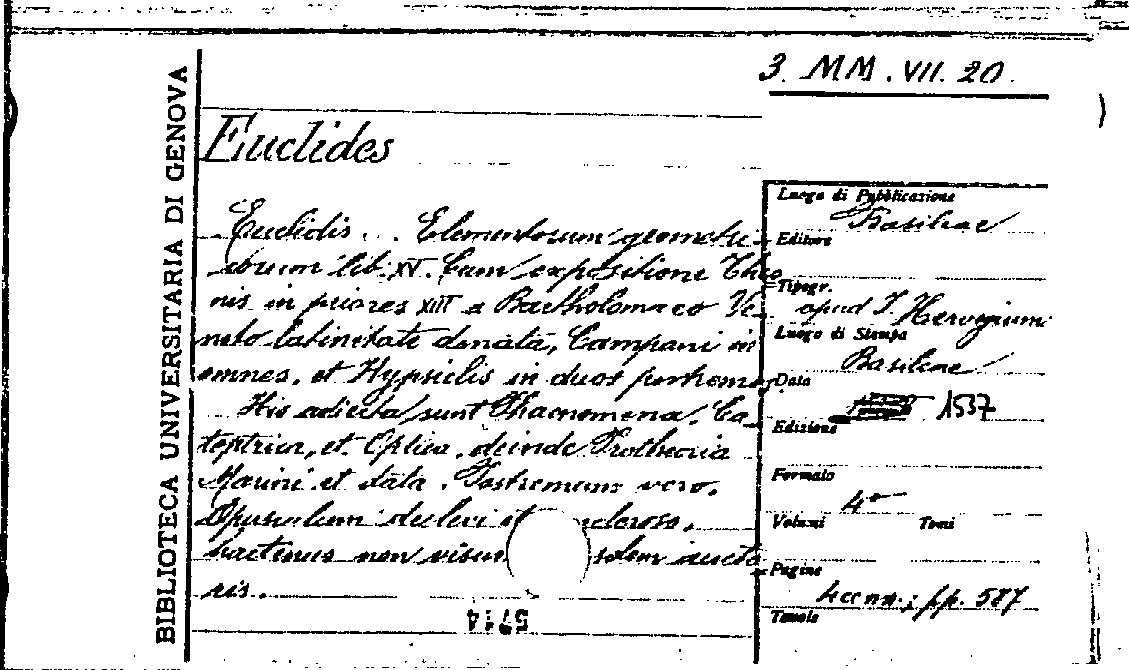 3. MM. VII. 20.
BIBLIOTECA UNIVERSITARIA DI GENOVA
Euclides
Euclidis... Elementorum geometri-
corum lib. XV. Cum expositione Theo-
nis in priores XIII a Bartholomaeo Ve-
neto latinitate donata, Campani in
omnes, et Hypsiclis in duos postremos
His adiecta sunt Phaenomena, Ca-
toptrica, et Optica, deinde Protheoria
Marini et data. Postremum vero,
Opusculum de levi et
hactenus non visum aucto-
ris.
5714
Luogo di Pubblicazione
Basileae
Editore
Tipogr.
apud J. Hervagium
Luogo di Stampa
Basileae
Data
1537
Edizione
Formato
4°
Volumi Tomi
Pagine
4 cc nn.; pp. 587
Tavole